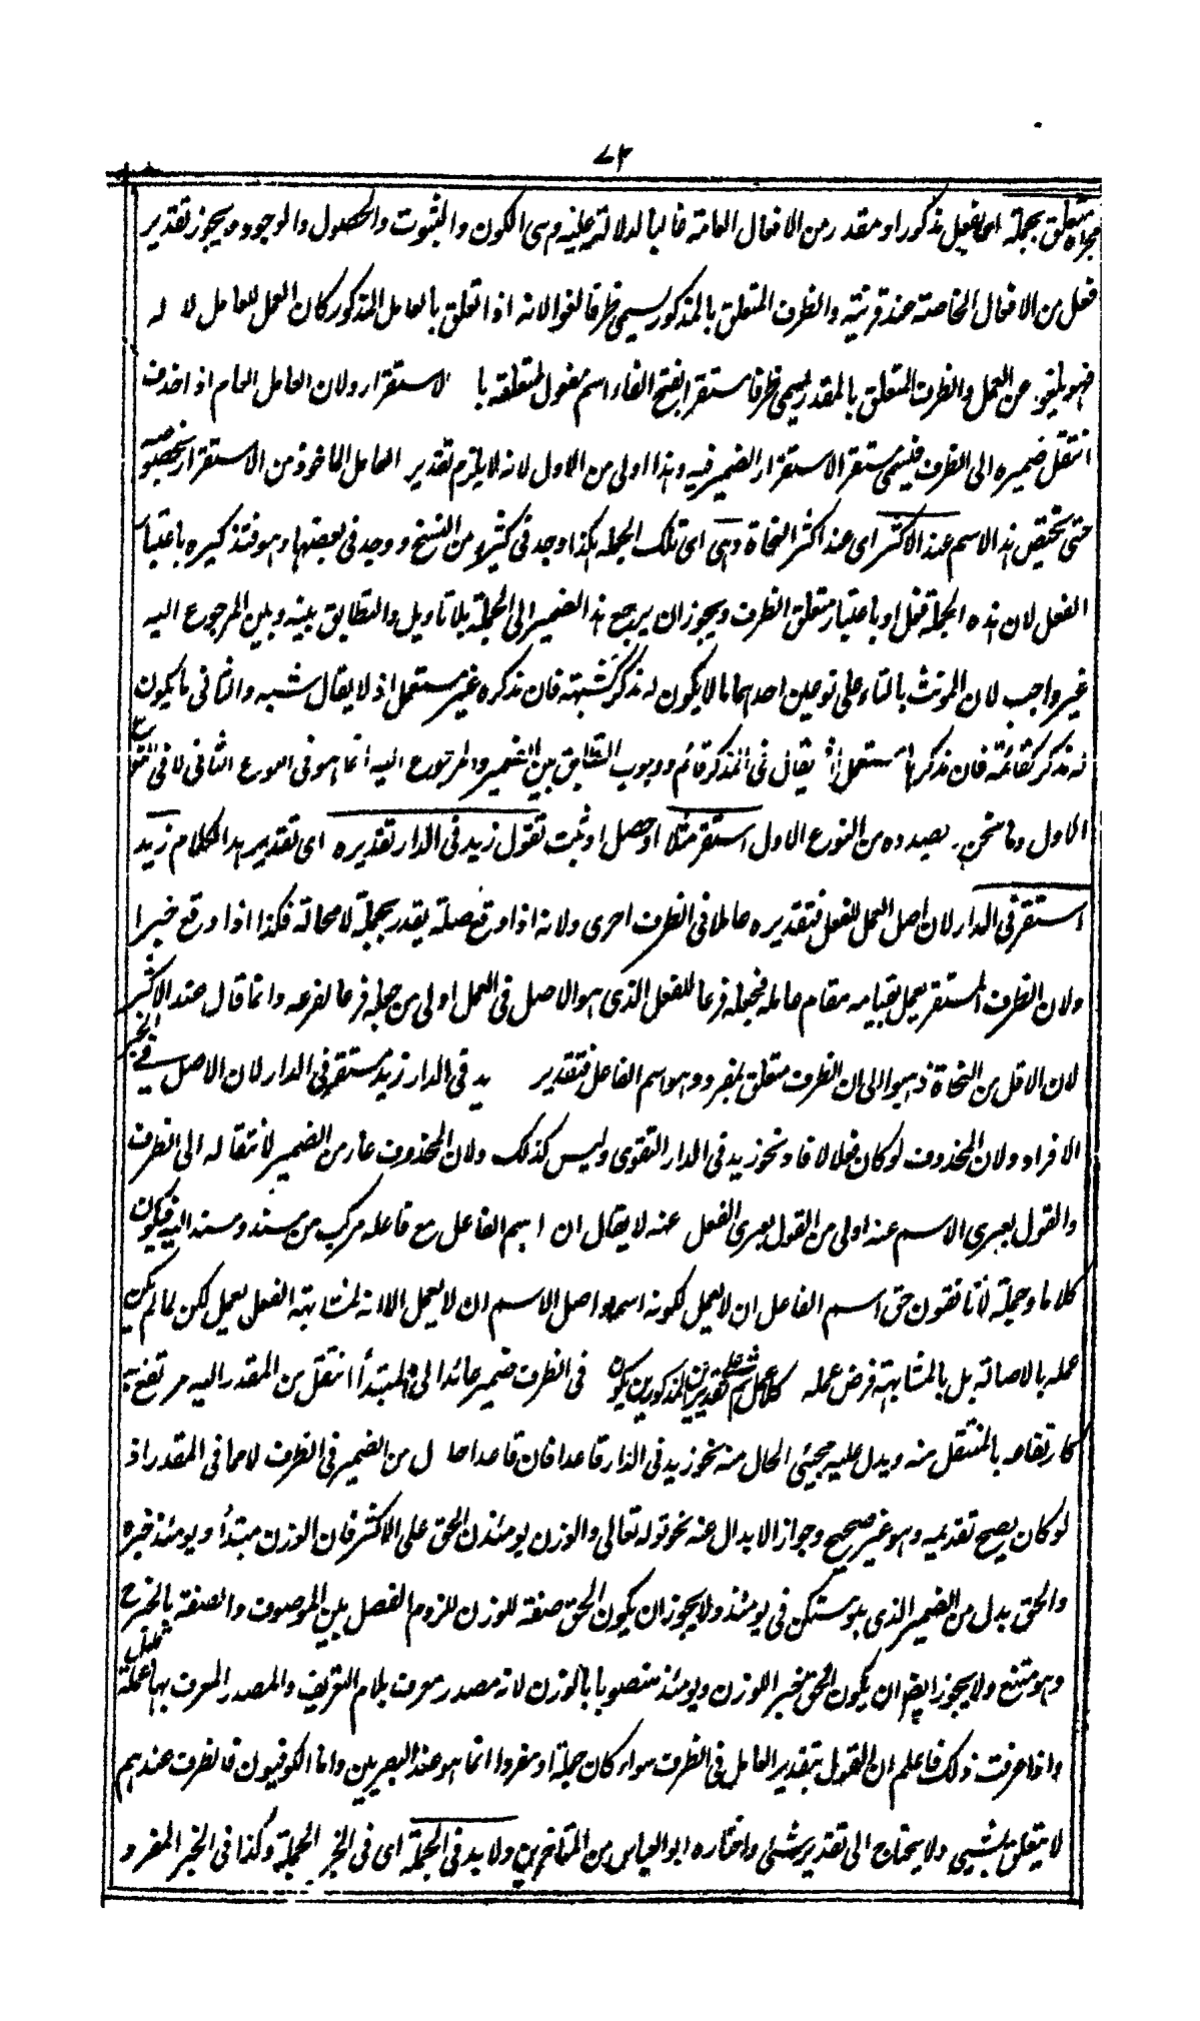 ٧٢
متعلق بجملة اى بفعل مذكور او مقدر من الافعال العامة غالبا لدلالته عليه وهى الكون والثبوت والحصول والوجود ويجوز تقدير
فعل من الافعال الخاصة عند قرينية والظرف المتعلق بالمذكور يسمى ظرفا لغوا لانه اذا تعلق بالعامل المذكور كان العمل للعامل لا له
فهو يلغو عن العمل والظرف المتعلق بالمقدر يسمى ظرفا مستقرا بفتح الفاء اسم مفعول لتعلقه با لاستقرار ولان العامل العام اذا حذف
انتقل ضميره الى الظرف فيسمى مستقرا لاستقرار الضمير فيه وهذا اولى من الاول لانه لا يلزم تقدير العامل الماخوذ من الاستقرار بخصوصه
حتى يختص هذا الاسم عند الاكثر اى عند اكثر النحاة وهى اى تلك الجملة هكذا وجد فى كثير من النسخ ووجد فى بعضها وهو فتذكيره باعتبار
الفعل لان هذه الجملة فعل او باعتبار متعلق الظرف ويجوز ان يرجع هذا الضمير الى الجملة بلا تاويل والتطابق بينه وبين المرجوع اليه
غير واجب لان المونث بالتاء على نوعين احدهما ما لا يكون له مذكر كشبهة فان مذكره غير مستعمل اذ لا يقال شبه والثانى ما يكون
له مذكر كقائمة فان مذكرها مستعمل اذ يقال فى المذكر قائم ووجوب التطابق بين الضمير والمرجوع اليه انما هو فى النوع الثانى لا فى النوع
الاول وما نحن بصدده من النوع الاول استقر مثلا او حصل او ثبت تقول زيد فى الدار تقديره اى تقدير هذا الكلام زيد
استقر فى الدار لان اصل العمل للفعل فتقديره عاملا فى الظرف احرى ولانه اذا وقع صلة يقدر بجملة لا محالة فكذا اذا وقع خبرا
ولان الظرف المستقر يعمل بقيامه مقام عامله فجعله فرعا للفعل الذى هو الاصل فى العمل اولى من جعله فرعا لفرعه وانما قال عند الاكثر
لان الاقل من النحاة ذهبوا الى ان الظرف متعلق بمفرد وهو اسم الفاعل فتقدير يد فى الدار زيد مستقر فى الدار لان الاصل فى الخبر
الافراد ولان المحذوف لو كان فعلا لافاد نحو زيد فى الدار التقوى وليس كذلك ولان المحذوف عار من الضمير لانتقاله الى الظرف
والقول بعرى الاسم عنه اولى من القول بعرى الفعل عنه لا يقال ان اسم الفاعل مع فاعله مركب من مسند ومسند اليه فيكون
كلاما وجملة لانا نقول حق اسم الفاعل ان لا يعمل لكونه اسما واصل الاسم ان لا يعمل الا انه لمشابهة الفعل يعمل لكن لما لم يكن
عمله بالاصالة بل بالمشابهة فرض عمله كلا عمل ثم على تقديرين المذكورين يكون فى الظرف ضمير عائد الى المبتدأ انتقل من المقدر اليه مرتفع به
كارتفاعه بالمنتقل منه ويدل عليه مجيئ الحال منه نحو زيد فى الدار قاعدا فان قاعدا حا ل من الضمير فى الظرف لا مما فى المقدر اذ
لو كان يصح تقديمه وهو غير صحيح وجواز الابدال عنه نحو قوله تعالى والوزن يومئذن الحق على الاكثر فان الوزن مبتدأ ويومئذ خبره
والحق بدل من الضمير الذى هو مستكن فى يومئذ ولا يجوز ان يكون الحق صفة للوزن للزوم الفصل بين الموصوف والصفة بالخبر
وهو ممتنع ولا يجوز ايضا ان يكون الحق خبر اللوزن ويومئذ منصوبا بالوزن لانه مصدر معرف بلام التعريف والمصدر المعرف بها عمله
واذا عرفت ذلك فاعلم ان القول بتقدير العامل فى الظرف سواء كان جملة او مفردا انما هو عند البصريين واما الكوفيون فالظرف عندهم
لا يتعلق بشيى ولا يحتاج الى تقدير شئى واختاره ابو العباس من المتاخرين ولا بد فى الجملة اى فى الخبر الجملة وكذا فى الخبر المفرد